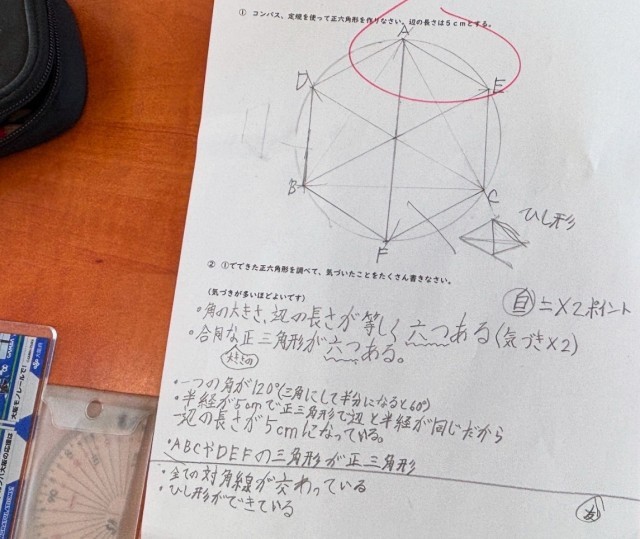 ① コンパス、定規を使って正六角形を作りなさい。辺の長さは5cmとする。
A
D
E
B
C
F
ひし形
② ①でできた正六角形を調べて、気づいたことをたくさん書きなさい。
(気づきが多いほどよいです)
自=×2ポイント
・角の大きさ、辺の長さが等しく六つある(気づき×2)
・合同な正三角形が六つある。
大きさの
・一つの角が120°(三角にして半分になると60°)
・半径が5cmで正三角形で辺と半径が同じだから
辺の長さが5cmになっている。
・ABCやDEFの三角形が正三角形
・全ての対角線が交わっている
・ひし形ができている
友